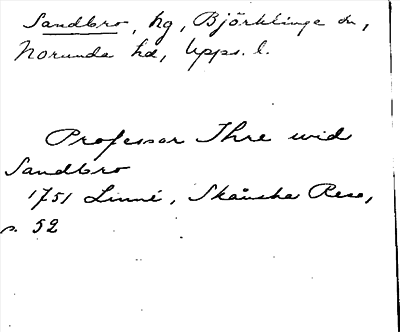 Sandbro, hg, Björklinge sn,
Norunda hd, Upps. l.
Professor Ihre wid
Sandbro
1751 Linné, Skånska Resa,
s. 52